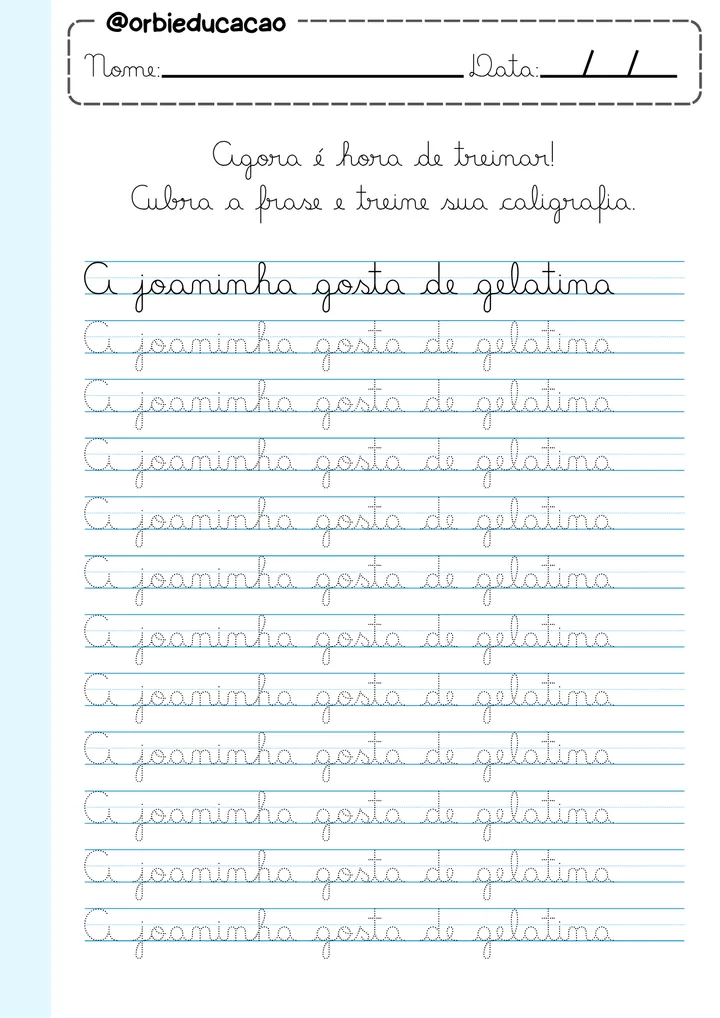 @orbieducacao
Nome: Data: / /
Agora é hora de treinar!
Cubra a frase e treine sua caligrafia.
A joaninha gosta de gelatina
A joaninha gosta de gelatina
A joaninha gosta de gelatina
A joaninha gosta de gelatina
A joaninha gosta de gelatina
A joaninha gosta de gelatina
A joaninha gosta de gelatina
A joaninha gosta de gelatina
A joaninha gosta de gelatina
A joaninha gosta de gelatina
A joaninha gosta de gelatina
A joaninha gosta de gelatina